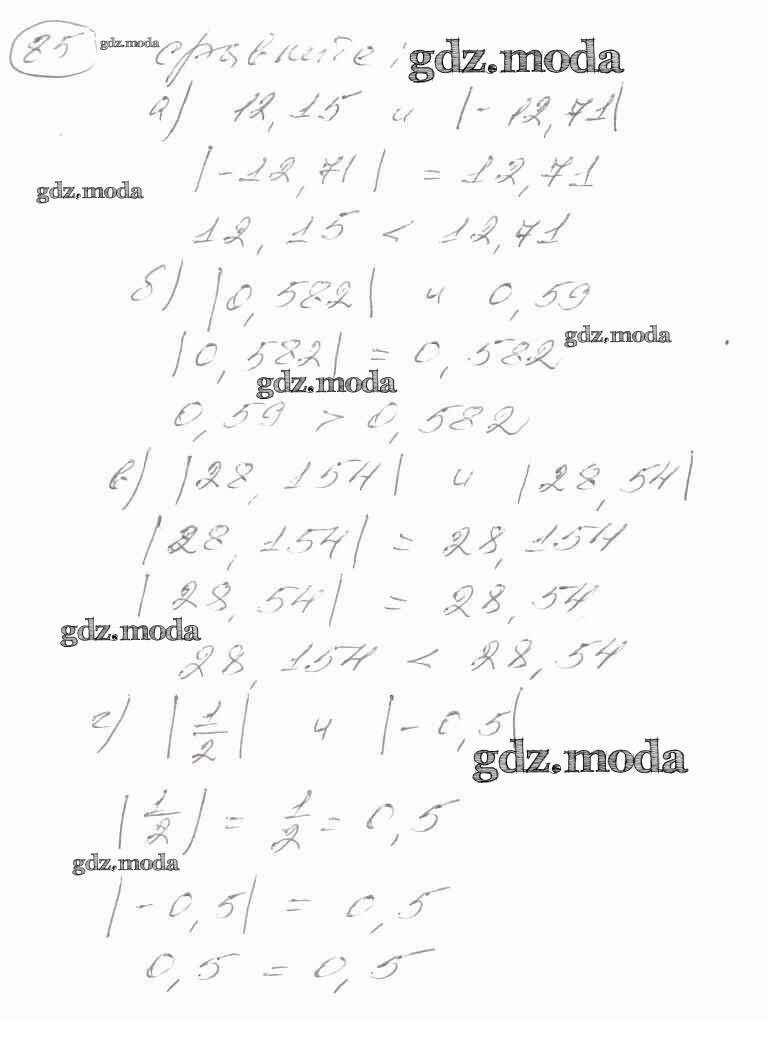 25 gdz.moda сравните: gdz.moda
а) 12,15 и |-12,71|
|-12,71| = 12,71
gdz.moda
12,15 < 12,71
б) |0,582| и 0,59
gdz.moda
|0,582| = 0,582
gdz.moda
0,59 > 0,582
в) |28,154| и |28,54|
|28,154| = 28,154
|28,54| = 28,54
gdz.moda
28,154 < 28,54
г) |1/2| и |-0,5|
gdz.moda
|1/2| = 1/2 = 0,5
gdz.moda
|-0,5| = 0,5
0,5 = 0,5